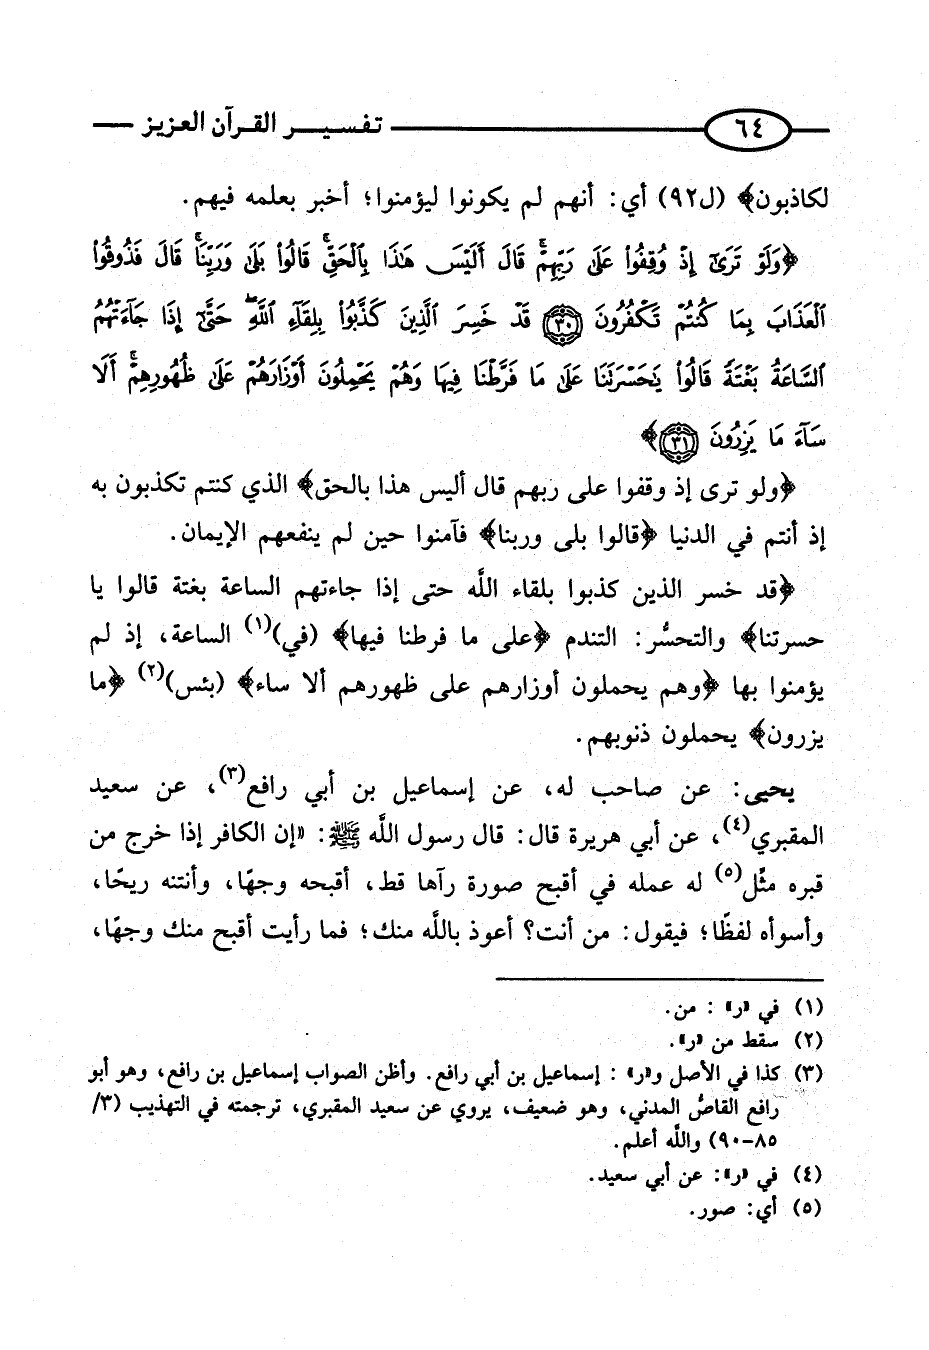 ٦٤ تفسير القرآن العزيز
لكاذبون﴾ (ل٩٢) أي: أنهم لم يكونوا ليؤمنوا؛ أخبر بعلمه فيهم.
﴿وَلَوْ تَرَىٰٓ إِذْ وُقِفُوا۟ عَلَىٰ رَبِّهِمْ ۚ قَالَ أَلَيْسَ هَٰذَا بِٱلْحَقِّ ۚ قَالُوا۟ بَلَىٰ وَرَبِّنَا ۚ قَالَ فَذُوقُوا۟
ٱلْعَذَابَ بِمَا كُنتُمْ تَكْفُرُونَ ٣٠ قَدْ خَسِرَ ٱلَّذِينَ كَذَّبُوا۟ بِلِقَآءِ ٱللَّهِ ۖ حَتَّىٰٓ إِذَا جَآءَتْهُمُ
ٱلسَّاعَةُ بَغْتَةً قَالُوا۟ يَٰحَسْرَتَنَا عَلَىٰ مَا فَرَّطْنَا فِيهَا وَهُمْ يَحْمِلُونَ أَوْزَارَهُمْ عَلَىٰ ظُهُورِهِمْ ۚ أَلَا
سَآءَ مَا يَزِرُونَ ٣١﴾
﴿ولو ترى إذ وقفوا على ربهم قال أليس هذا بالحق﴾ الذي كنتم تكذبون به
إذ أنتم في الدنيا ﴿قالوا بلى وربنا﴾ فآمنوا حين لم ينفعهم الإيمان.
﴿قد خسر الذين كذبوا بلقاء اللَّه حتى إذا جاءتهم الساعة بغتة قالوا يا
حسرتنا﴾ والتحسُّر: التندم ﴿على ما فرطنا فيها﴾ (في)(١) الساعة، إذ لم
يؤمنوا بها ﴿وهم يحملون أوزارهم على ظهورهم ألا ساء﴾ (بئس)(٢) ﴿ما
يزرون﴾ يحملون ذنوبهم.
يحيى: عن صاحب له، عن إسماعيل بن أبي رافع(٣)، عن سعيد
المقبري(٤)، عن أبي هريرة قال: قال رسول اللَّه ﷺ: «إن الكافر إذا خرج من
قبره مثّل(٥) له عمله في أقبح صورة رآها قط، أقبحه وجهًا، وأنتنه ريحًا،
وأسوأه لفظًا؛ فيقول: من أنت؟ أعوذ باللَّه منك؛ فما رأيت أقبح منك وجهًا،
(١) في «ر» : من.
(٢) سقط من «ر».
(٣) كذا في الأصل و«ر» : إسماعيل بن أبي رافع. وأظن الصواب إسماعيل بن رافع، وهو أبو
رافع القاصُّ المدني، وهو ضعيف، يروي عن سعيد المقبري، ترجمته في التهذيب (٣/
٨٥-٩٠) واللَّه أعلم.
(٤) في «ر»: عن أبي سعيد.
(٥) أي: صور.